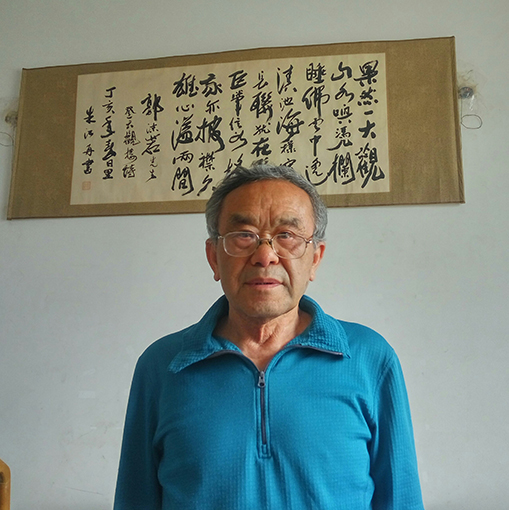 果然一大觀
山水喚凭欄
睡佛雲中逸
滇池海樣寬
長聯犹在
巨筆信如
我亦披襟久
雄心溢兩間
郭沫若先生
登大觀樓詩
丁亥年春日
朱江書